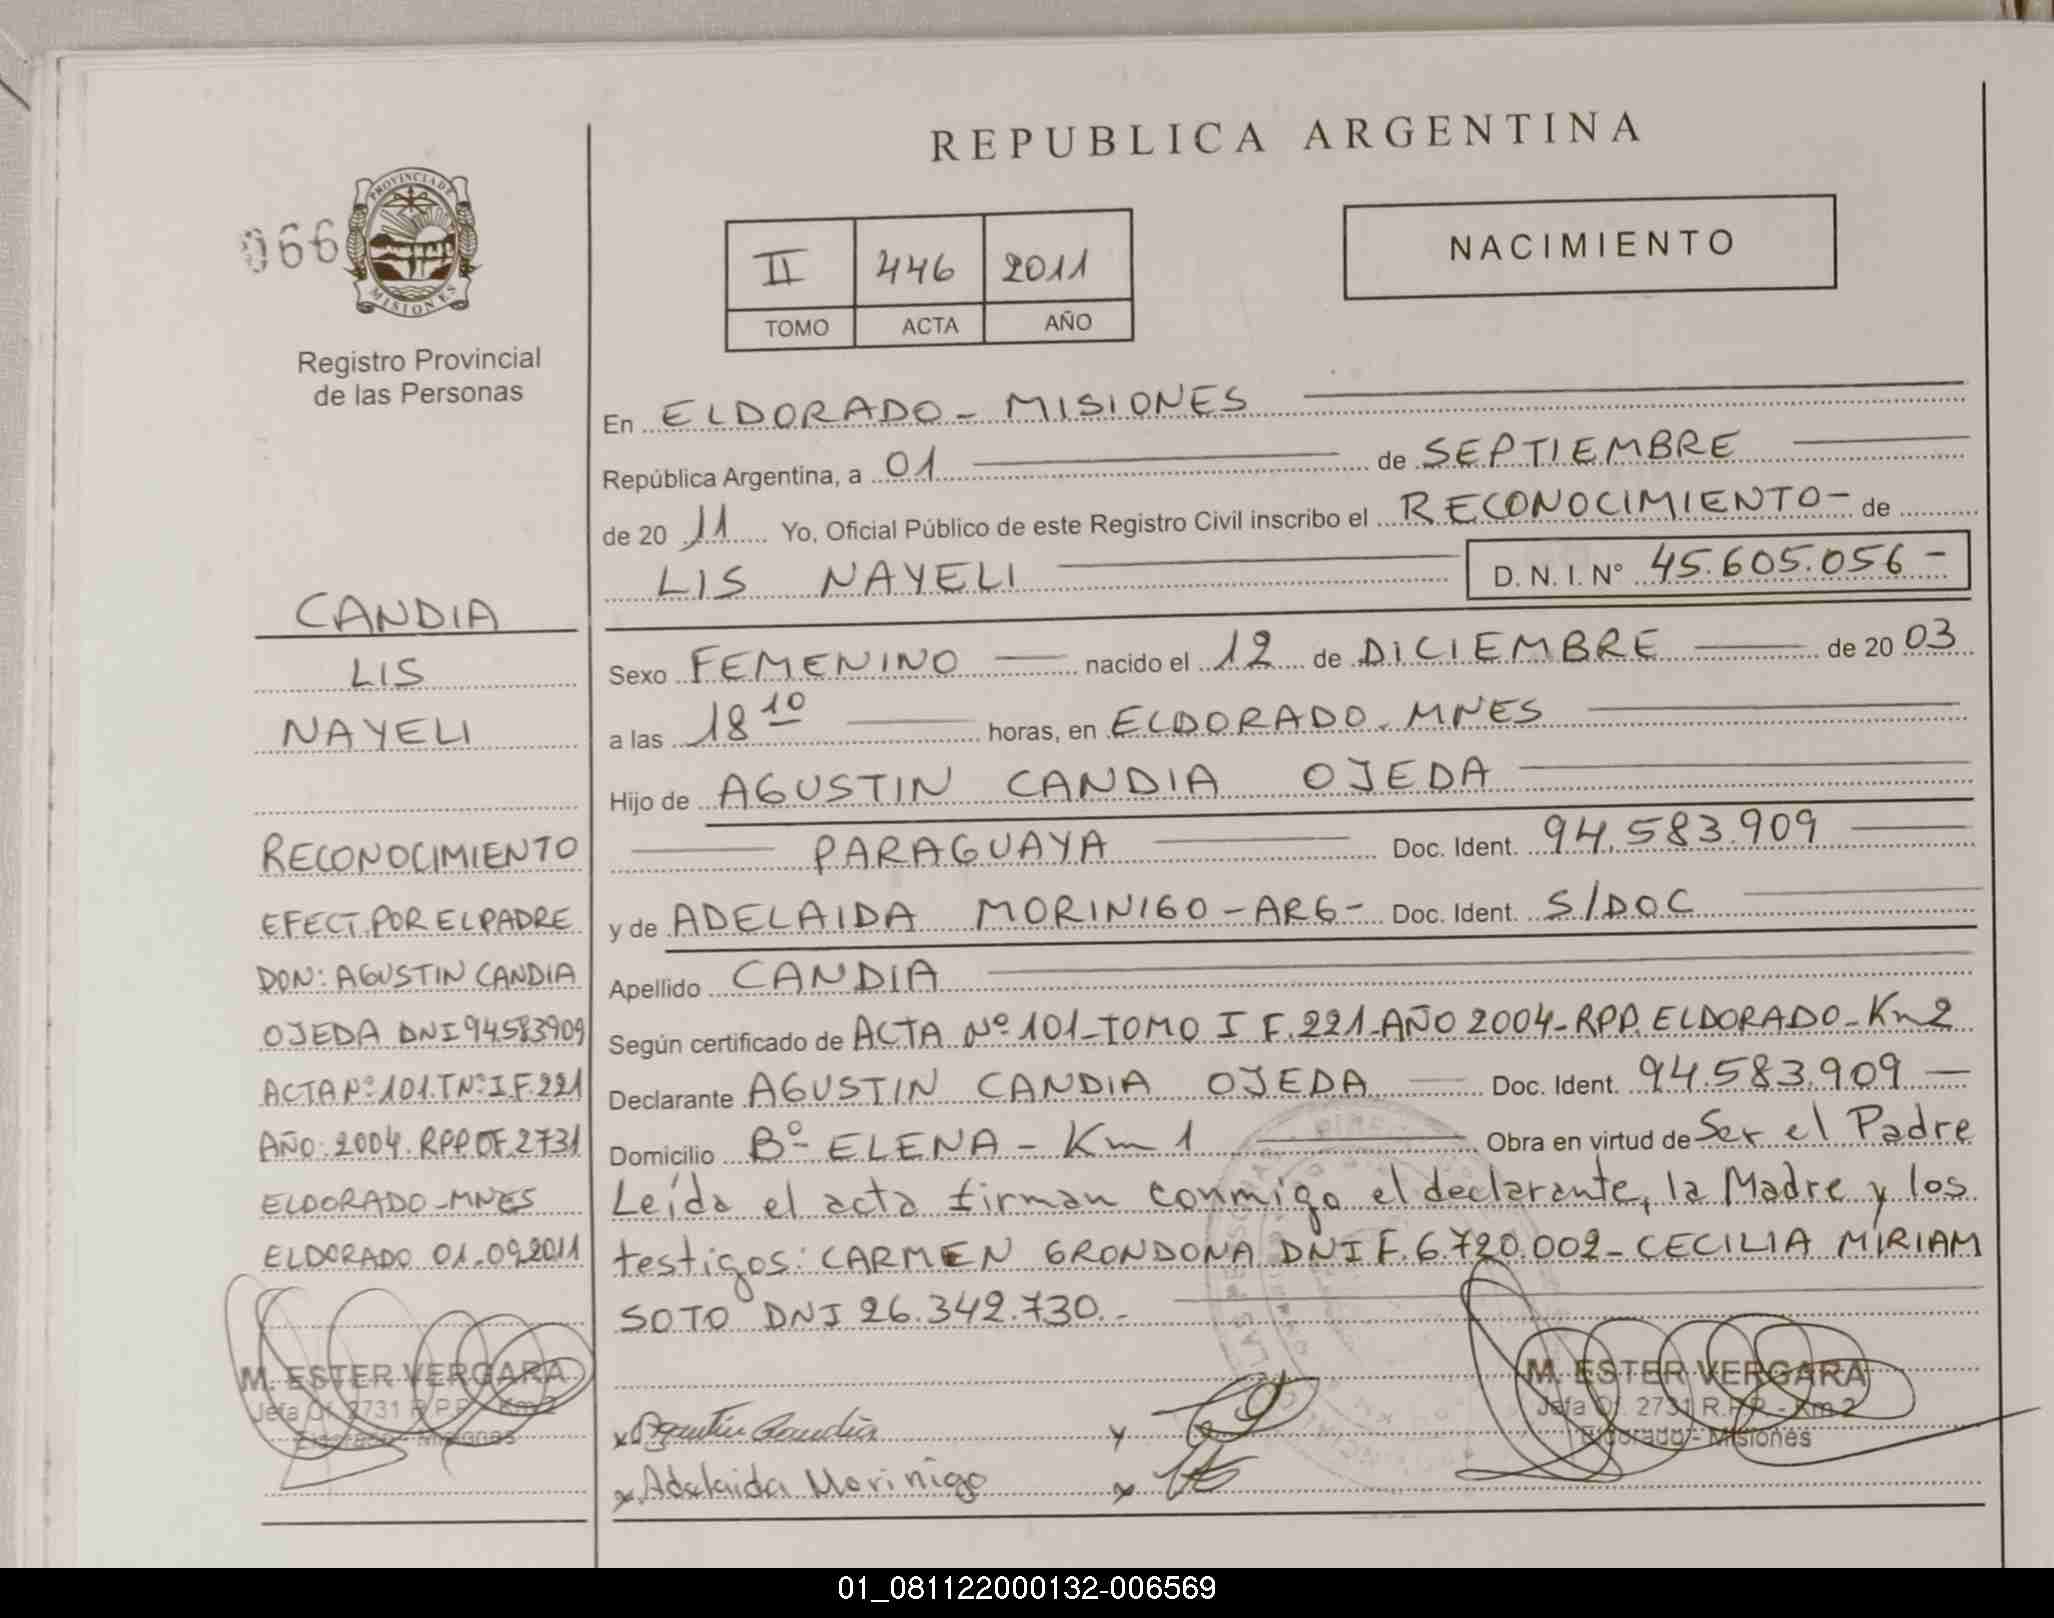 REPUBLICA ARGENTINA
066
PROVINCIA DE
MISIONES
Registro Provincial
de las Personas
II 446 2011
TOMO ACTA AÑO
NACIMIENTO
En ELDORADO - MISIONES
República Argentina, a 01 de SEPTIEMBRE
de 20 11 Yo, Oficial Público de este Registro Civil inscribo el RECONOCIMIENTO - de
LIS NAYELI D. N. I. N° 45.605.056 -
Sexo FEMENINO nacido el 12 de DICIEMBRE de 20 03
a las 18 10 horas, en ELDORADO - MNES
Hijo de AGUSTIN CANDIA OJEDA
PARAGUAYA Doc. Ident. 94.583.909
y de ADELAIDA MORINIGO - ARG - Doc. Ident. S/DOC
Apellido CANDIA
Según certificado de ACTA Nº 101 - TOMO I F. 221 - AÑO 2004 - RPP. ELDORADO - Km 2
Declarante AGUSTIN CANDIA OJEDA Doc. Ident. 94.583.909
Domicilio Bº ELENA - Km 1 Obra en virtud de Ser el Padre
Leída el acta firman conmigo el declarante, la Madre y los
testigos: CARMEN GRONDONA DNI F. 6.720.002 - CECILIA MIRIAM
SOTO DNI 26.342.730.-
M. ESTER VERGARA
Jefa Of. 2731 R.P.P. - Km 2
Eldorado - Misiones
x Agustin Candia
x Adelaida Morinigo
CANDIA
LIS
NAYELI
RECONOCIMIENTO
EFECT. POR EL PADRE
DON: AGUSTIN CANDIA
OJEDA DNI 94583909
ACTA Nº 101. T Nº I F. 221
AÑO: 2004. RPP. OF. 2731
ELDORADO - MNES
ELDORADO 01.09.2011
M. ESTER VERGARA
Jefa Of. 2731 R.P.P. - Km 2
Eldorado - Misiones
01_081122000132-006569